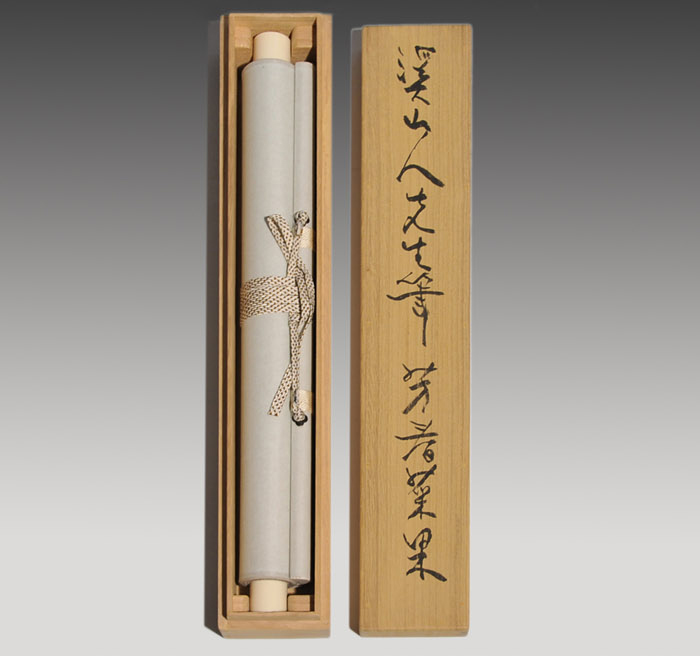 溪山人先生筆 芳春菜果